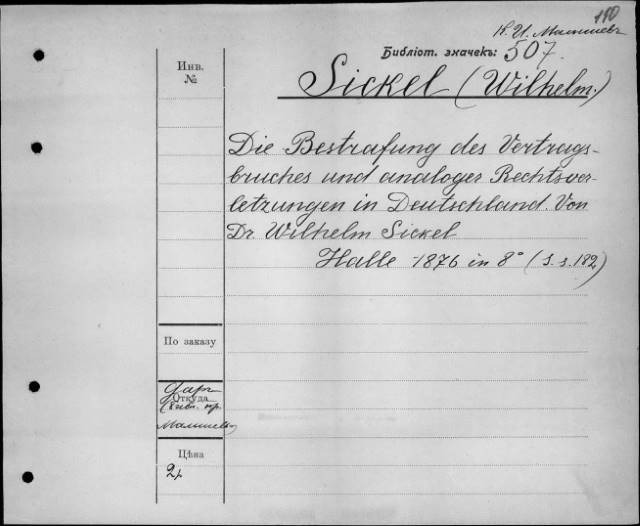 110
К. И. Малышевъ
Библіот. значекъ: 507.
Инв.
№
Sickel (Wilhelm.)
Die Bestrafung des Vertrags-
bruches und analoger Rechtsver-
letzungen in Deutschland. Von
Dr. Wilhelm Sickel
Halle 1876 in 8° (S. s. 182)
По заказу
Даръ
Откуда
Малышева
Цѣна
2 р.